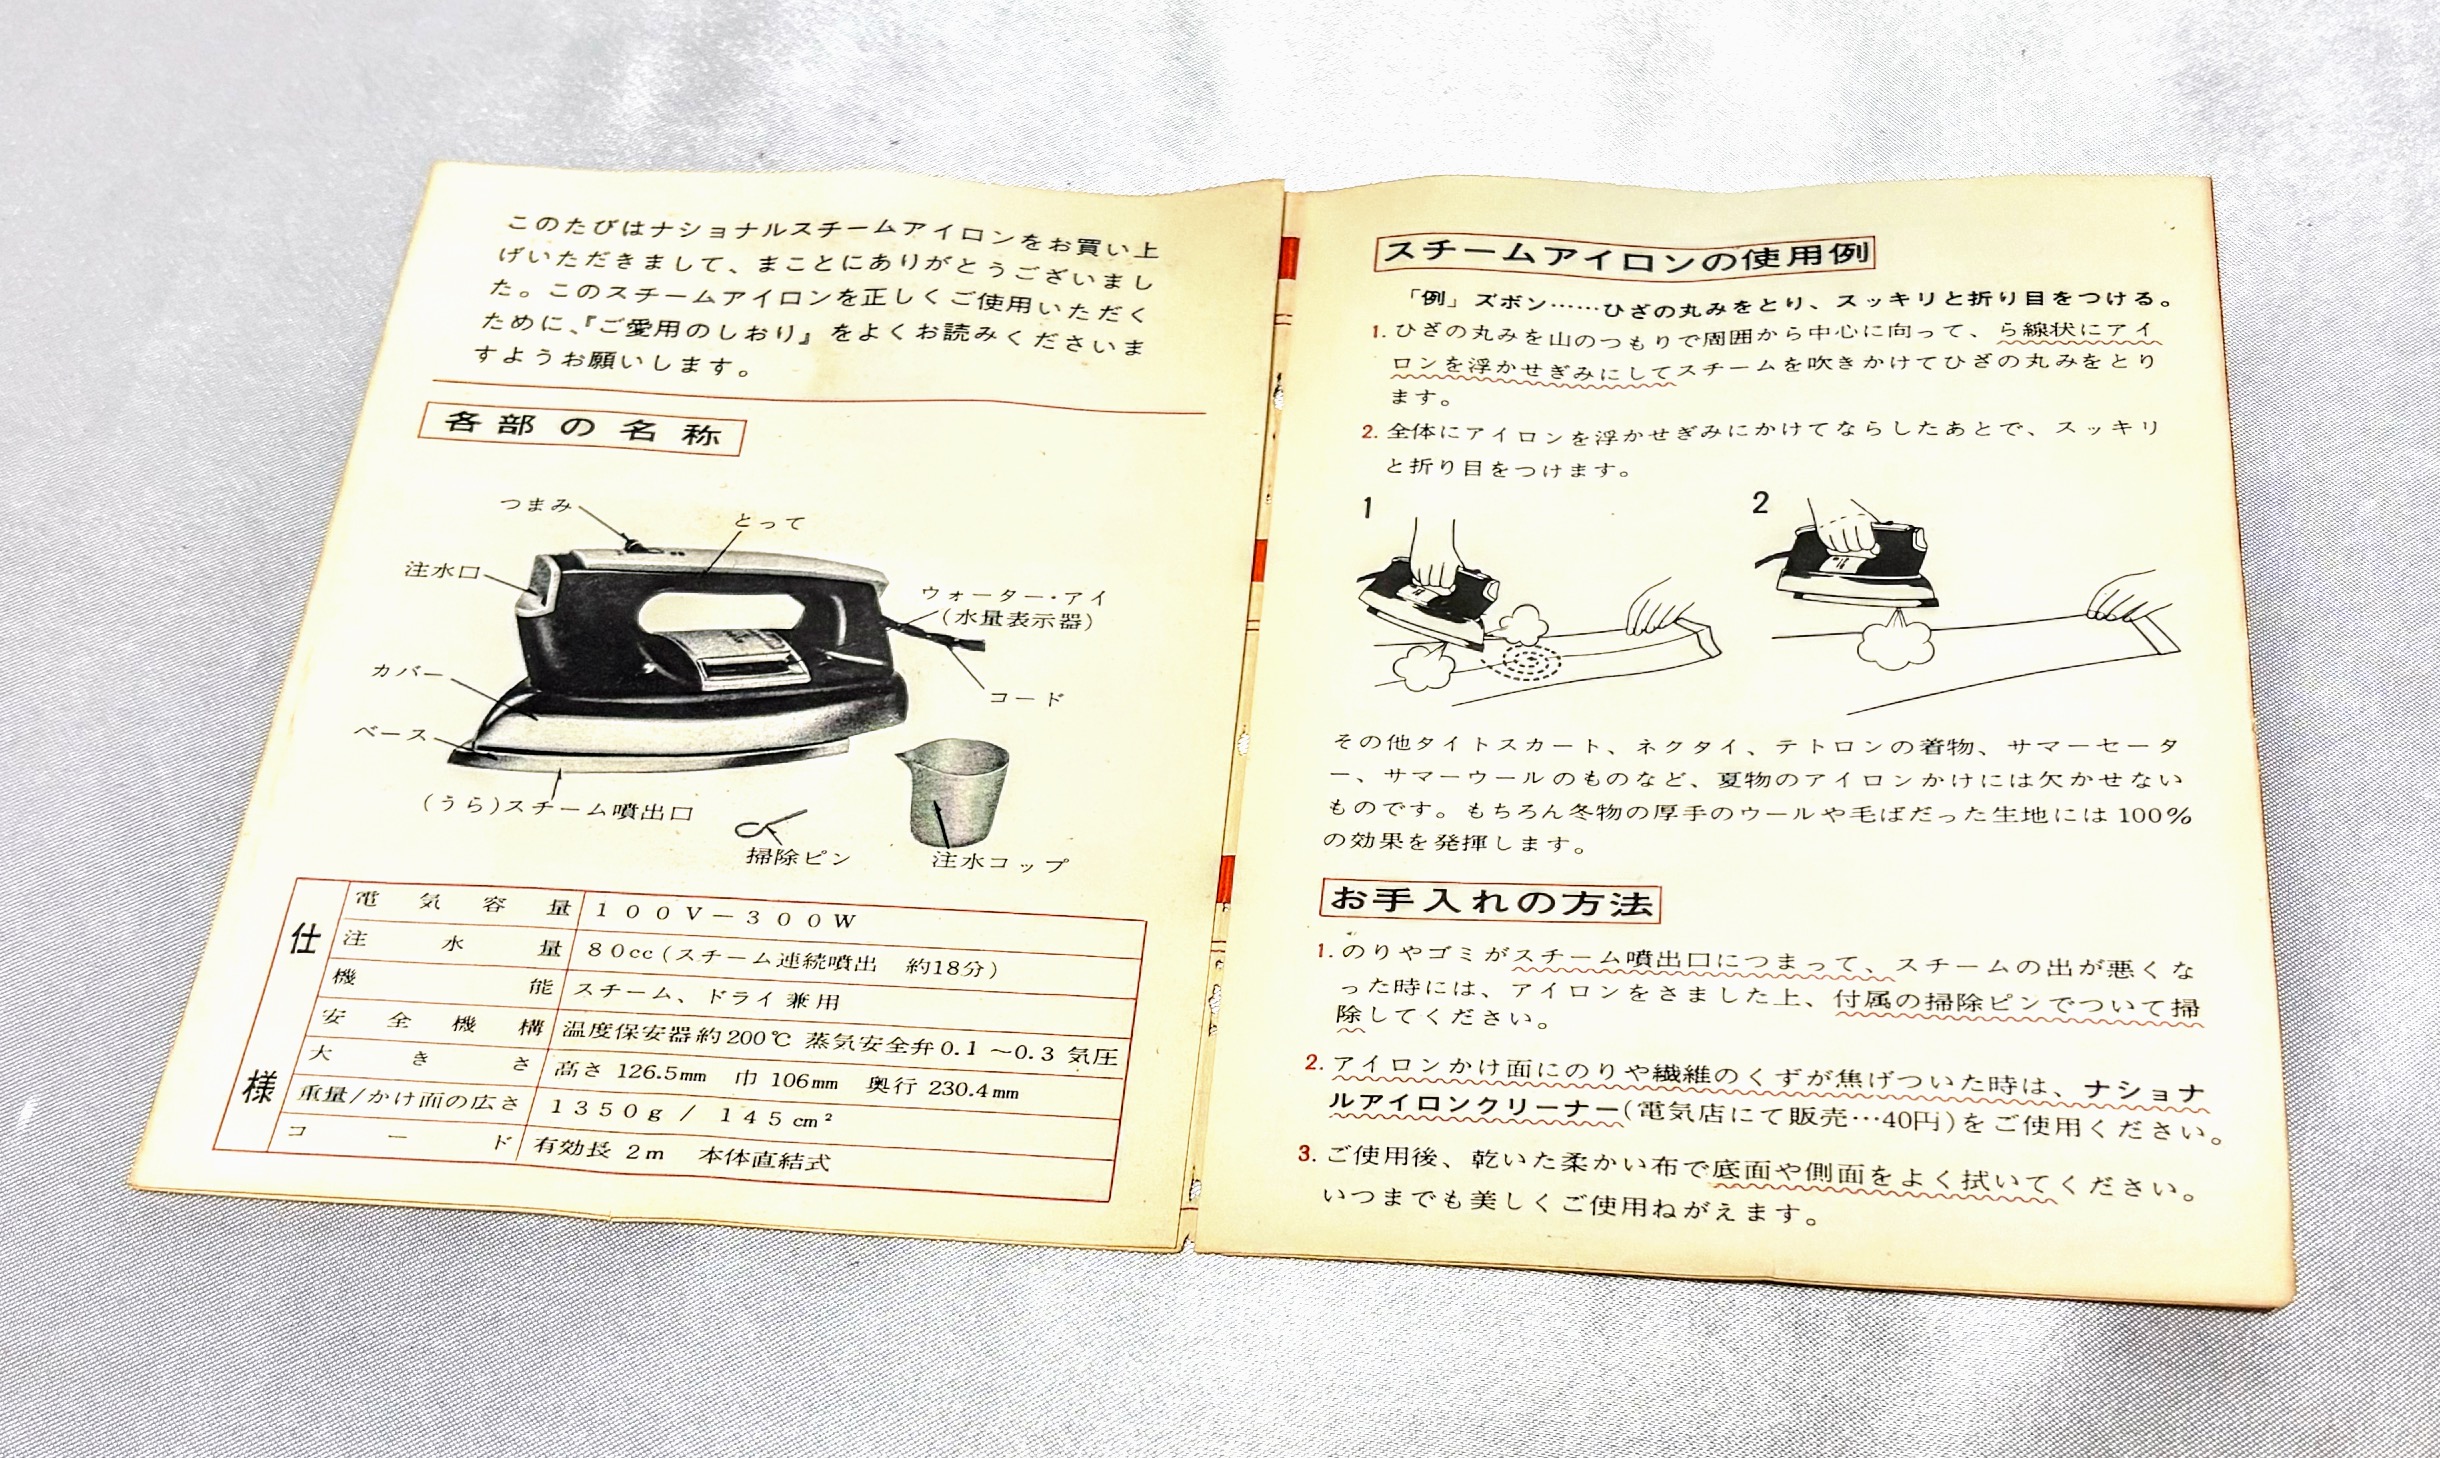 このたびはナショナルスチームアイロンをお買い上
げいただきまして、まことにありがとうございまし
た。このスチームアイロンを正しくご使用いただく
ために、『ご愛用のしおり』をよくお読みくださいま
すようお願いします。
各部の名称
つまみ
とって
注水口
ウォーター・アイ
(水量表示器)
カバー
コード
ベース
(うら)スチーム噴出口
掃除ピン
注水コップ
仕様
電気容量 100V－300W
注水量 80cc(スチーム連続噴出 約18分)
機能 スチーム、ドライ兼用
安全機構 温度保安器約200℃ 蒸気安全弁0.1～0.3気圧
大きさ 高さ 126.5mm 巾 106mm 奥行 230.4mm
重量/かけ面の広さ 1350g / 145cm²
コード 有効長 2m 本体直結式
スチームアイロンの使用例
「例」ズボン……ひざの丸みをとり、スッキリと折り目をつける。
1. ひざの丸みを山のつもりで周囲から中心に向って、ら線状にアイ
ロンを浮かせぎみにしてスチームを吹きかけてひざの丸みをとり
ます。
2. 全体にアイロンを浮かせぎみにかけてならしたあとで、スッキリ
と折り目をつけます。
1
2
その他タイトスカート、ネクタイ、テトロンの着物、サマーセータ
ー、サマーウールのものなど、夏物のアイロンかけには欠かせない
ものです。もちろん冬物の厚手のウールや毛ばだった生地には100%
の効果を発揮します。
お手入れの方法
1. のりやゴミがスチーム噴出口につまって、スチームの出が悪くな
った時には、アイロンをさました上、付属の掃除ピンでついて掃
除してください。
2. アイロンかけ面にのりや繊維のくずが焦げついた時は、ナショナ
ルアイロンクリーナー(電気店にて販売…40円)をご使用ください。
3. ご使用後、乾いた柔かい布で底面や側面をよく拭いてください。
いつまでも美しくご使用ねがえます。